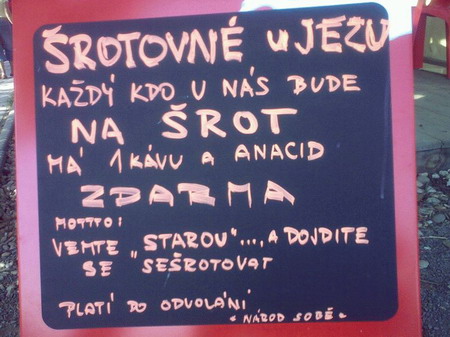 ŠROTOVNÉ u JEŽU
KAŽDÝ KDO U NÁS BUDE
NA ŠROT
MÁ 1 KÁVU a ANACID
ZDARMA
MOTTO:
VEMTE „STAROU"..., A DOJDITE
SE SEŠROTOVAT
PLATÍ DO ODVOLÁNÍ
"NÁROD SOBĚ"